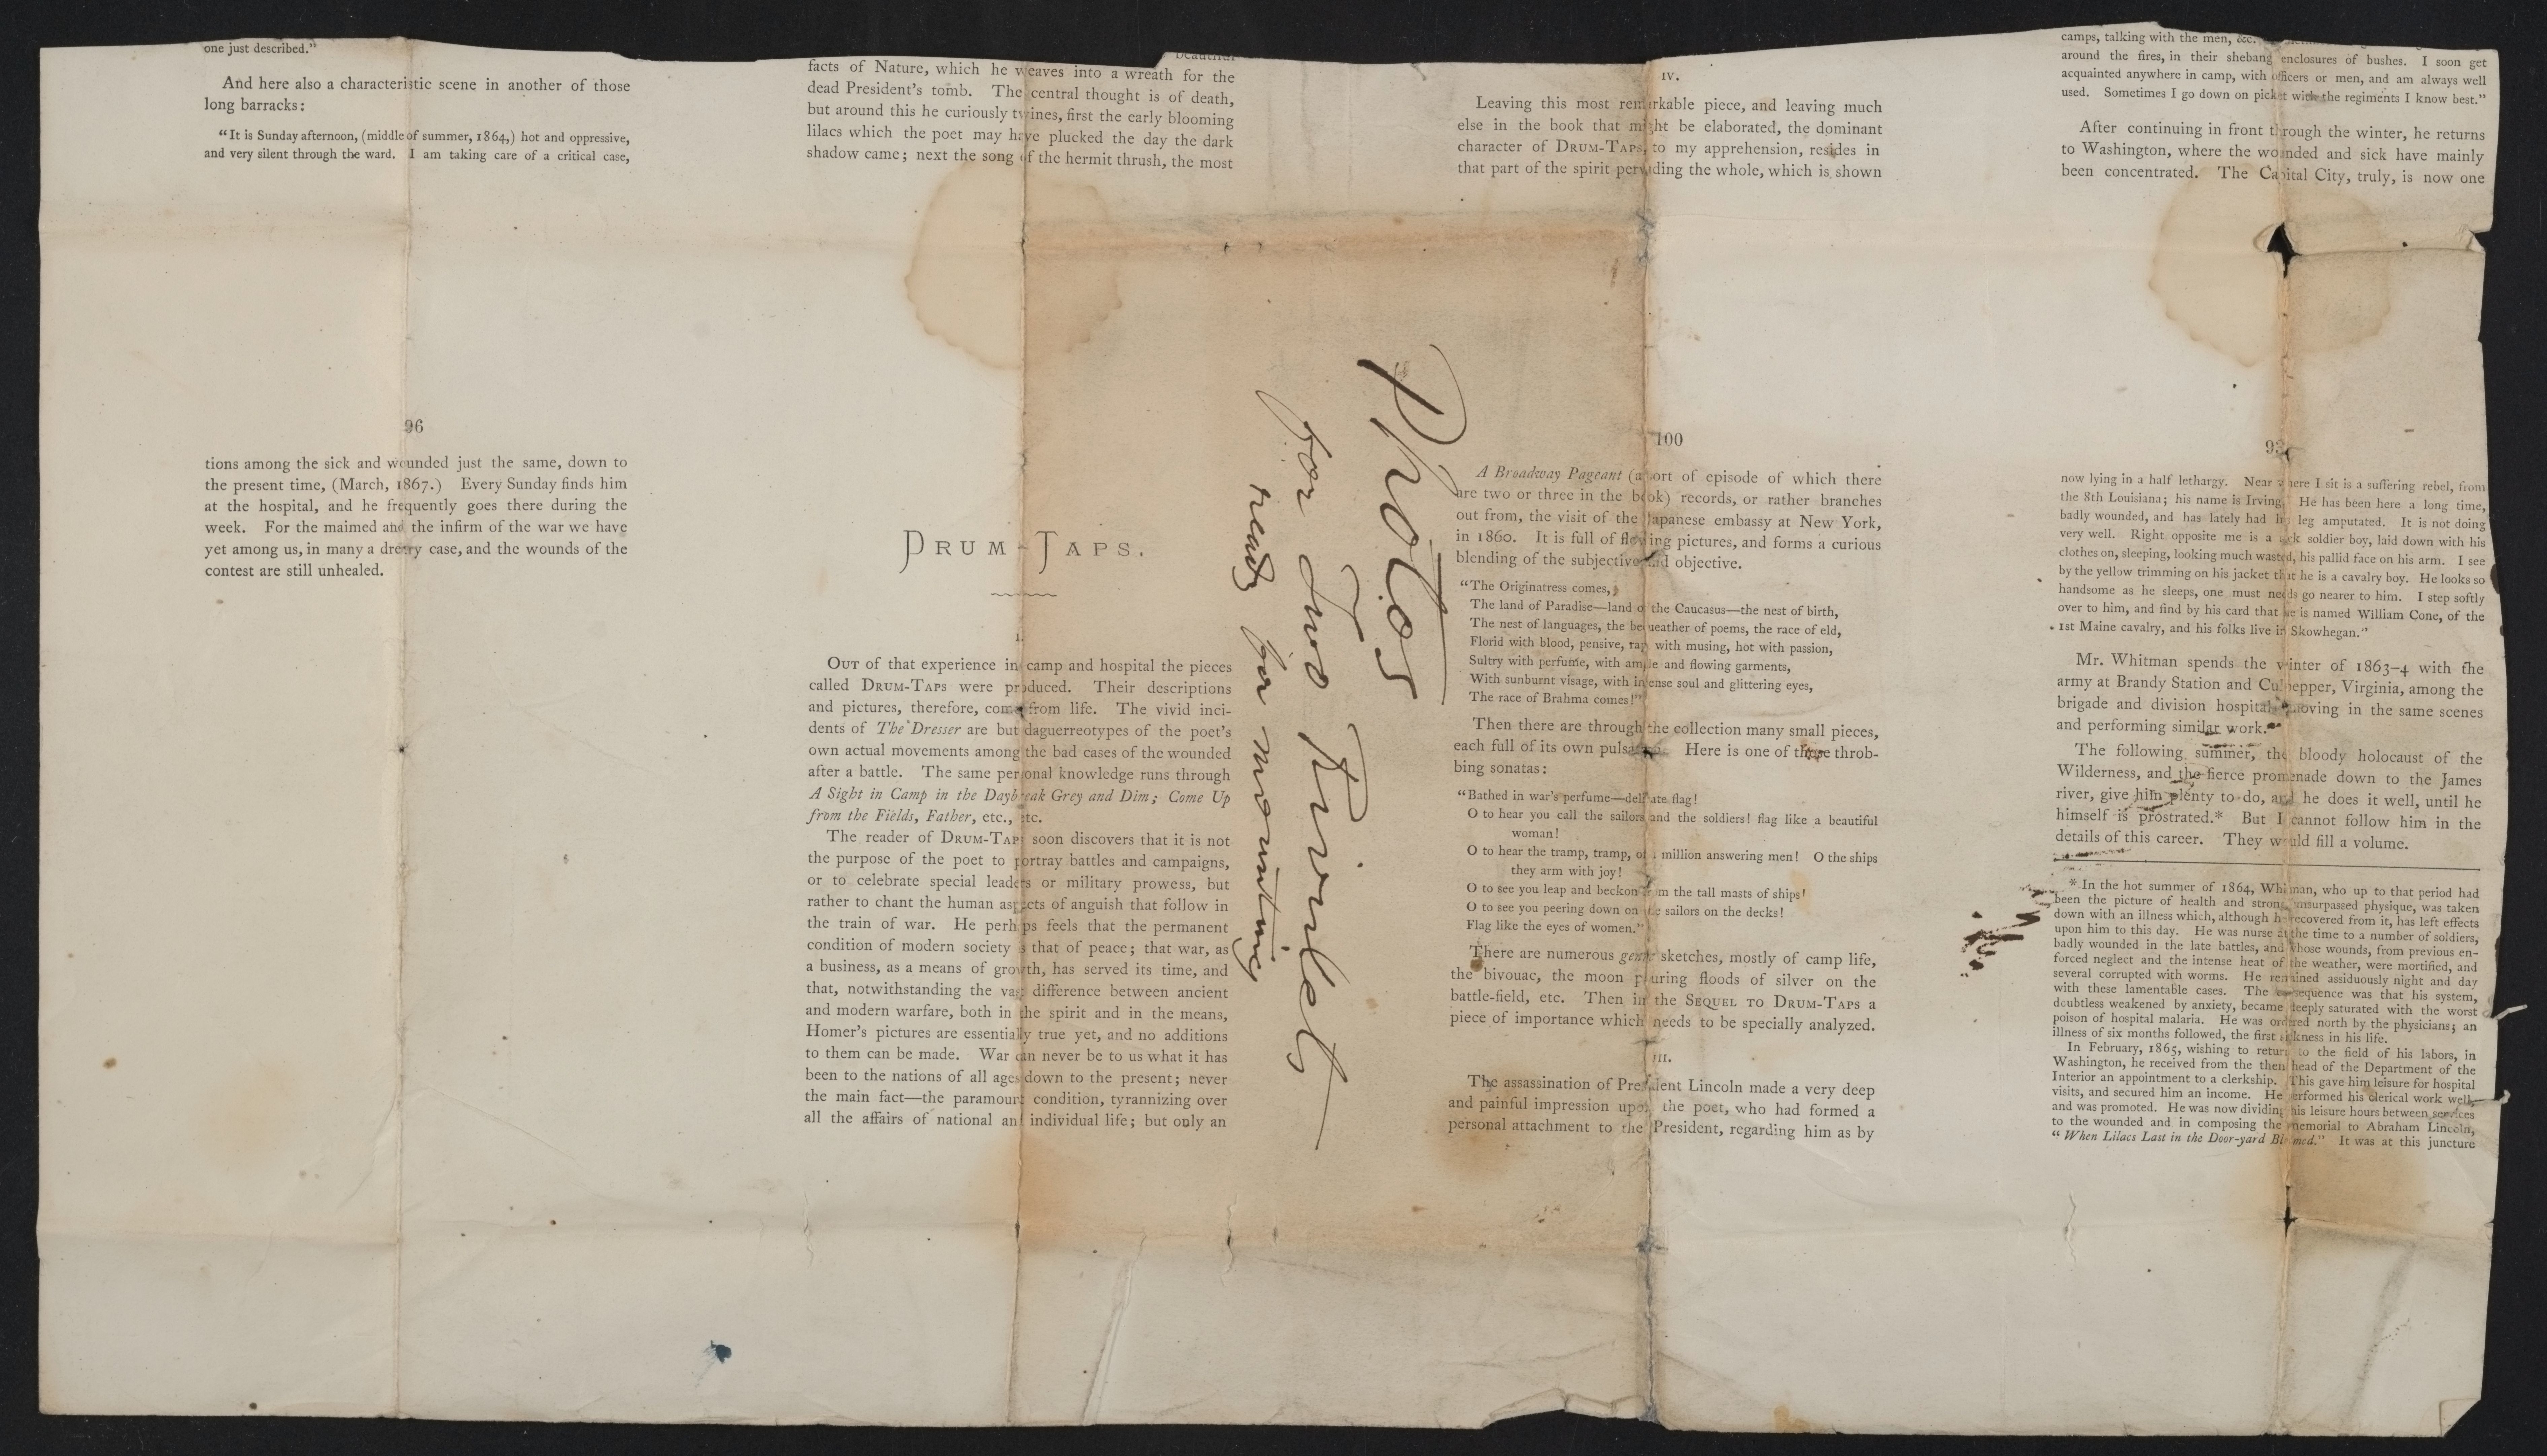 one just described."
And here also a characteristic scene in another of those
long barracks:
"It is Sunday afternoon, (middle of summer, 1864,) hot and oppressive,
and very silent through the ward. I am taking care of a critical case,
96
tions among the sick and wounded just the same, down to
the present time, (March, 1867.) Every Sunday finds him
at the hospital, and he frequently goes there during the
week. For the maimed and the infirm of the war we have
yet among us, in many a dreary case, and the wounds of the
contest are still unhealed.
beautiful
facts of Nature, which he weaves into a wreath for the
dead President's tomb. The central thought is of death,
but around this he curiously twines, first the early blooming
lilacs which the poet may have plucked the day the dark
shadow came; next the song of the hermit thrush, the most
DRUM-TAPS.
I.
OUT of that experience in camp and hospital the pieces
called DRUM-TAPS were produced. Their descriptions
and pictures, therefore, come from life. The vivid inci-
dents of The Dresser are but daguerreotypes of the poet's
own actual movements among the bad cases of the wounded
after a battle. The same personal knowledge runs through
A Sight in Camp in the Daybreak Grey and Dim; Come Up
from the Fields, Father, etc., etc.
The reader of DRUM-TAPS soon discovers that it is not
the purpose of the poet to portray battles and campaigns,
or to celebrate special leaders or military prowess, but
rather to chant the human aspects of anguish that follow in
the train of war. He perhaps feels that the permanent
condition of modern society is that of peace; that war, as
a business, as a means of growth, has served its time, and
that, notwithstanding the vast difference between ancient
and modern warfare, both in the spirit and in the means,
Homer's pictures are essentially true yet, and no additions
to them can be made. War can never be to us what it has
been to the nations of all ages down to the present; never
the main fact—the paramount condition, tyrannizing over
all the affairs of national and individual life; but only an
Photos
for Two Rivulets
ready for mounting
IV.
Leaving this most remarkable piece, and leaving much
else in the book that might be elaborated, the dominant
character of DRUM-TAPS, to my apprehension, resides in
that part of the spirit pervading the whole, which is shown
100
A Broadway Pageant (a sort of episode of which there
are two or three in the book) records, or rather branches
out from, the visit of the Japanese embassy at New York,
in 1860. It is full of flowing pictures, and forms a curious
blending of the subjective and objective.
"The Originatress comes,
The land of Paradise—land of the Caucasus—the nest of birth,
The nest of languages, the bequeather of poems, the race of eld,
Florid with blood, pensive, rapt with musing, hot with passion,
Sultry with perfume, with ample and flowing garments,
With sunburnt visage, with intense soul and glittering eyes,
The race of Brahma comes!"
Then there are through the collection many small pieces,
each full of its own pulsations. Here is one of these throb-
bing sonatas:
"Bathed in war's perfume—delicate flag!
O to hear you call the sailors and the soldiers! flag like a beautiful
woman!
O to hear the tramp, tramp, of a million answering men! O the ships
they arm with joy!
O to see you leap and beckon from the tall masts of ships!
O to see you peering down on the sailors on the decks!
Flag like the eyes of women."
There are numerous genre sketches, mostly of camp life,
the bivouac, the moon pouring floods of silver on the
battle-field, etc. Then in the SEQUEL TO DRUM-TAPS a
piece of importance which needs to be specially analyzed.
III.
The assassination of President Lincoln made a very deep
and painful impression upon the poet, who had formed a
personal attachment to the President, regarding him as by
camps, talking with the men, &c.
around the fires, in their shebang enclosures of bushes. I soon get
acquainted anywhere in camp, with officers or men, and am always well
used. Sometimes I go down on picket with the regiments I know best."
After continuing in front through the winter, he returns
to Washington, where the wounded and sick have mainly
been concentrated. The Capital City, truly, is now one
93
now lying in a half lethargy. Near where I sit is a suffering rebel, from
the 8th Louisiana; his name is Irving. He has been here a long time,
badly wounded, and has lately had his leg amputated. It is not doing
very well. Right opposite me is a sick soldier boy, laid down with his
clothes on, sleeping, looking much wasted, his pallid face on his arm. I see
by the yellow trimming on his jacket that he is a cavalry boy. He looks so
handsome as he sleeps, one must needs go nearer to him. I step softly
over to him, and find by his card that he is named William Cone, of the
1st Maine cavalry, and his folks live in Skowhegan."
Mr. Whitman spends the winter of 1863–4 with the
army at Brandy Station and Culpepper, Virginia, among the
brigade and division hospitals, moving in the same scenes
and performing similar work.
The following summer, the bloody holocaust of the
Wilderness, and the fierce promenade down to the James
river, give him plenty to do, and he does it well, until he
himself is prostrated.* But I cannot follow him in the
details of this career. They would fill a volume.
* In the hot summer of 1864, Whitman, who up to that period had
been the picture of health and strong, unsurpassed physique, was taken
down with an illness which, although he recovered from it, has left effects
upon him to this day. He was nurse at the time to a number of soldiers,
badly wounded in the late battles, and whose wounds, from previous en-
forced neglect and the intense heat of the weather, were mortified, and
several corrupted with worms. He remained assiduously night and day
with these lamentable cases. The consequence was that his system,
doubtless weakened by anxiety, became deeply saturated with the worst
poison of hospital malaria. He was ordered north by the physicians; an
illness of six months followed, the first sickness in his life.
In February, 1865, wishing to return to the field of his labors, in
Washington, he received from the then head of the Department of the
Interior an appointment to a clerkship. This gave him leisure for hospital
visits, and secured him an income. He performed his clerical work well,
and was promoted. He was now dividing his leisure hours between services
to the wounded and in composing the memorial to Abraham Lincoln,
"When Lilacs Last in the Door-yard Bloomed." It was at this juncture